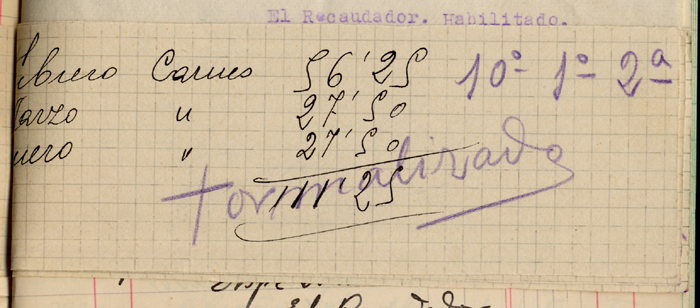 El Recaudador. Habilitado.
febrero Carnes 56'25 10º 1º 2ª
Marzo " 27'50
enero " 27'50
111'25
Formalizado